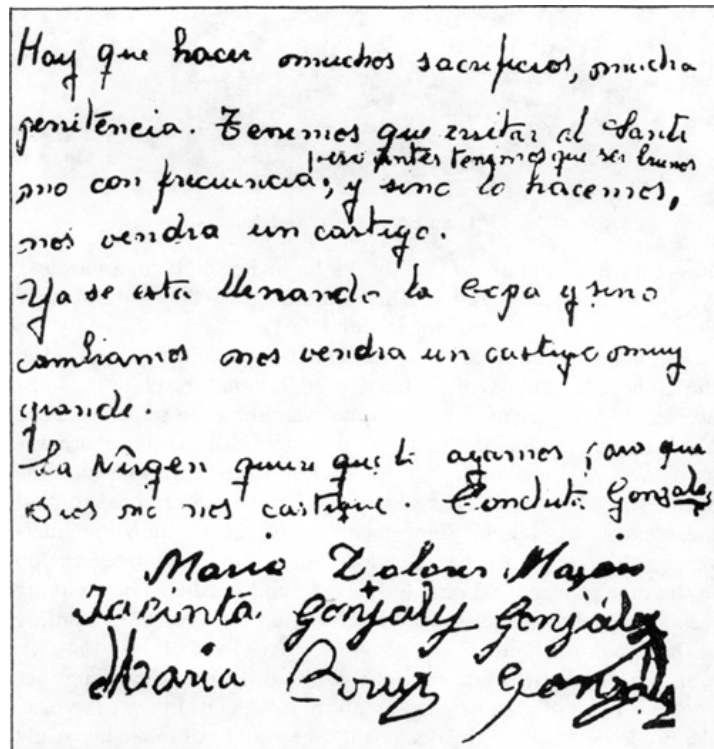 Hay que hacer muchos sacrificios, mucha
penitencia. Tenemos que visitar al Santi
pero antes tenemos que ser buenos
mo con frecuencia, y sino lo hacemos,
nos vendra un castigo.
Ya se esta llenando la copa y sino
cambiamos nos vendra un castigo muy
grande.
La Virgen quiere que lo agamos para que
Dios no nos castigue Conchita Gonzales
Maria Dolores Mazón
Jacinta Gonzalez González
Maria Cruz Gonzalez